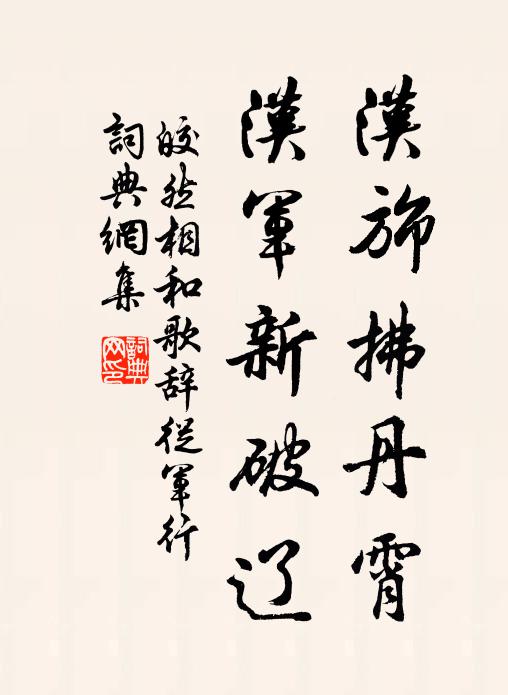 漢旆拂丹霄
漢軍新破辽
皎然相和歌辞從軍行
詞典網集
詞典网印